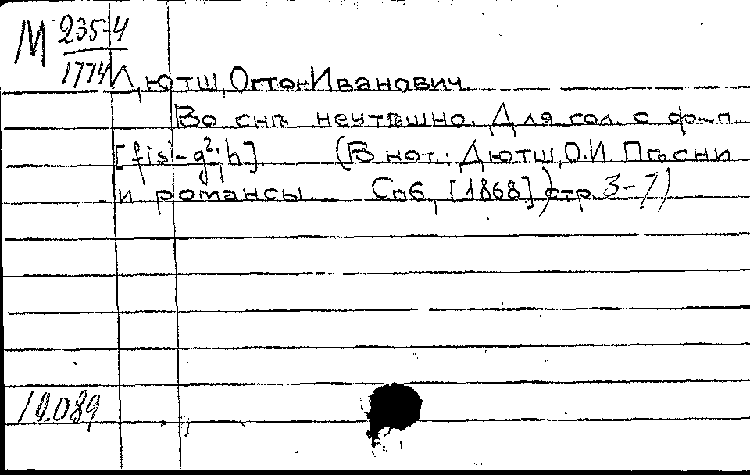 М 235-4
1774
Дютш, Оттон Иванович.
Во снѣ неутѣшно. Для сол. с ф-п.
[fis¹-g²; h] (В нот.: Дютш, О.И. Пѣсни
и романсы Спб, [1868], стр. 3-7)
19.089